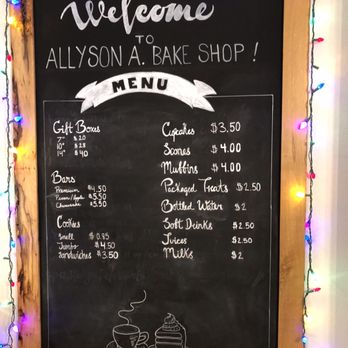 Welcome
TO
ALLYSON A. BAKE SHOP!
MENU
Gift Boxes
7" $20
10" $28
14" $40
Bars
Premium $4.50
Pecan/Apple $5.50
Cheesecake $5.50
Cookies
Small $0.95
Jumbo $4.50
Sandwiches $3.50
Cupcakes $3.50
Scones $4.00
Muffins $4.00
Packaged Treats $2.50
Bottled Water $2
Soft Drinks $2.50
Juices $2.50
Milks $2